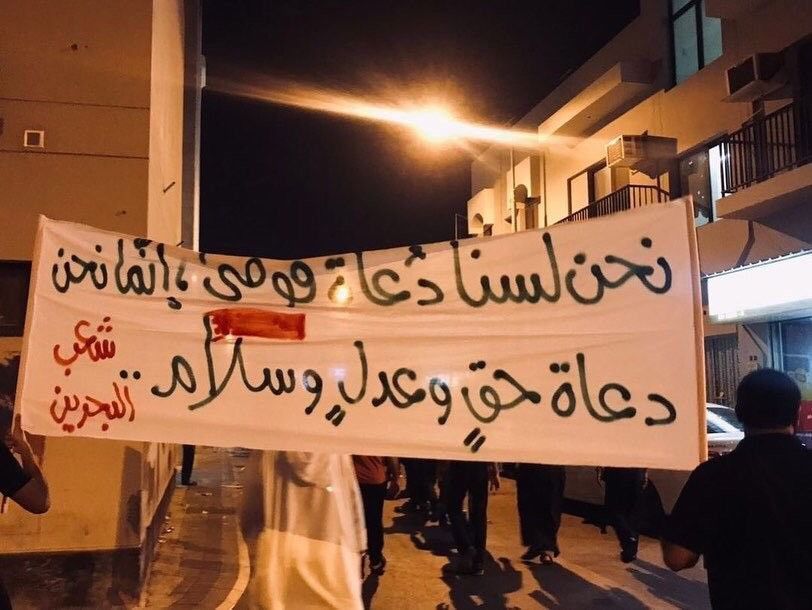 نحن لسنا دُعاة فوضى، إنّما نحن
دعاة حقٍ وعدلٍ وسلام ..
شعب
البحرين